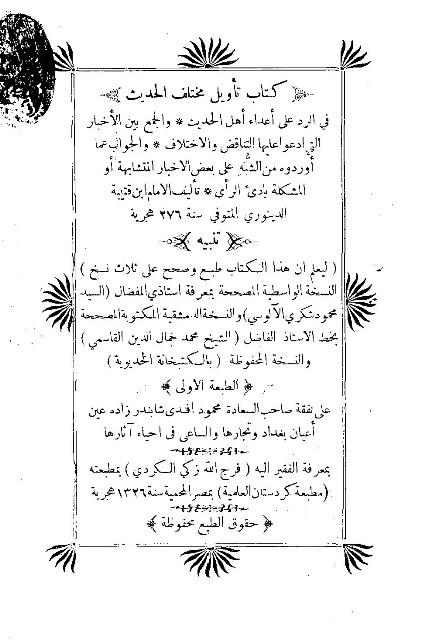 كتاب تأويل مختلف الحديث
في الرد على أعداء أهل الحديث * والجمع بين الأخبار
التي ادعوا عليها التناقض والاختلاف * والجواب عما
أوردوه من الشبه على بعض الاخبار المتشابهة أو
المشكلة بادئ الرأى * تأليف الامام ابن قتيبة
الدينوري المتوفي سنة ٢٧٦ هجرية
تنبيه
( ليعلم أن هذا الكتاب طبع وصحح على ثلاث نسخ )
النسخة الواسطية المصححة بمعرفة استاذي المفضال (السيد
محمود شكري الآلوسي) والنسخة الدمشقية المكتوبة المصححة
بخط الاستاذ الفاضل ( الشيخ محمد جمال الدين القاسمي )
والنسخة المحفوظة ( بالكتبخانة الخديوية )
﴿ الطبعة الأولى ﴾
على نفقة صاحب السعادة محمود افندى شابندر زاده عين
أعيان بغداد وتجارها والساعى فى احياء آثارها
بمعرفة الفقير اليه ( فرج الله زكي الكردي ) بمطبعته
(مطبعة كردستان العلمية) بمصر المحمية سنة ١٣٢٦ هجرية
﴿ حقوق الطبع محفوظة ﴾